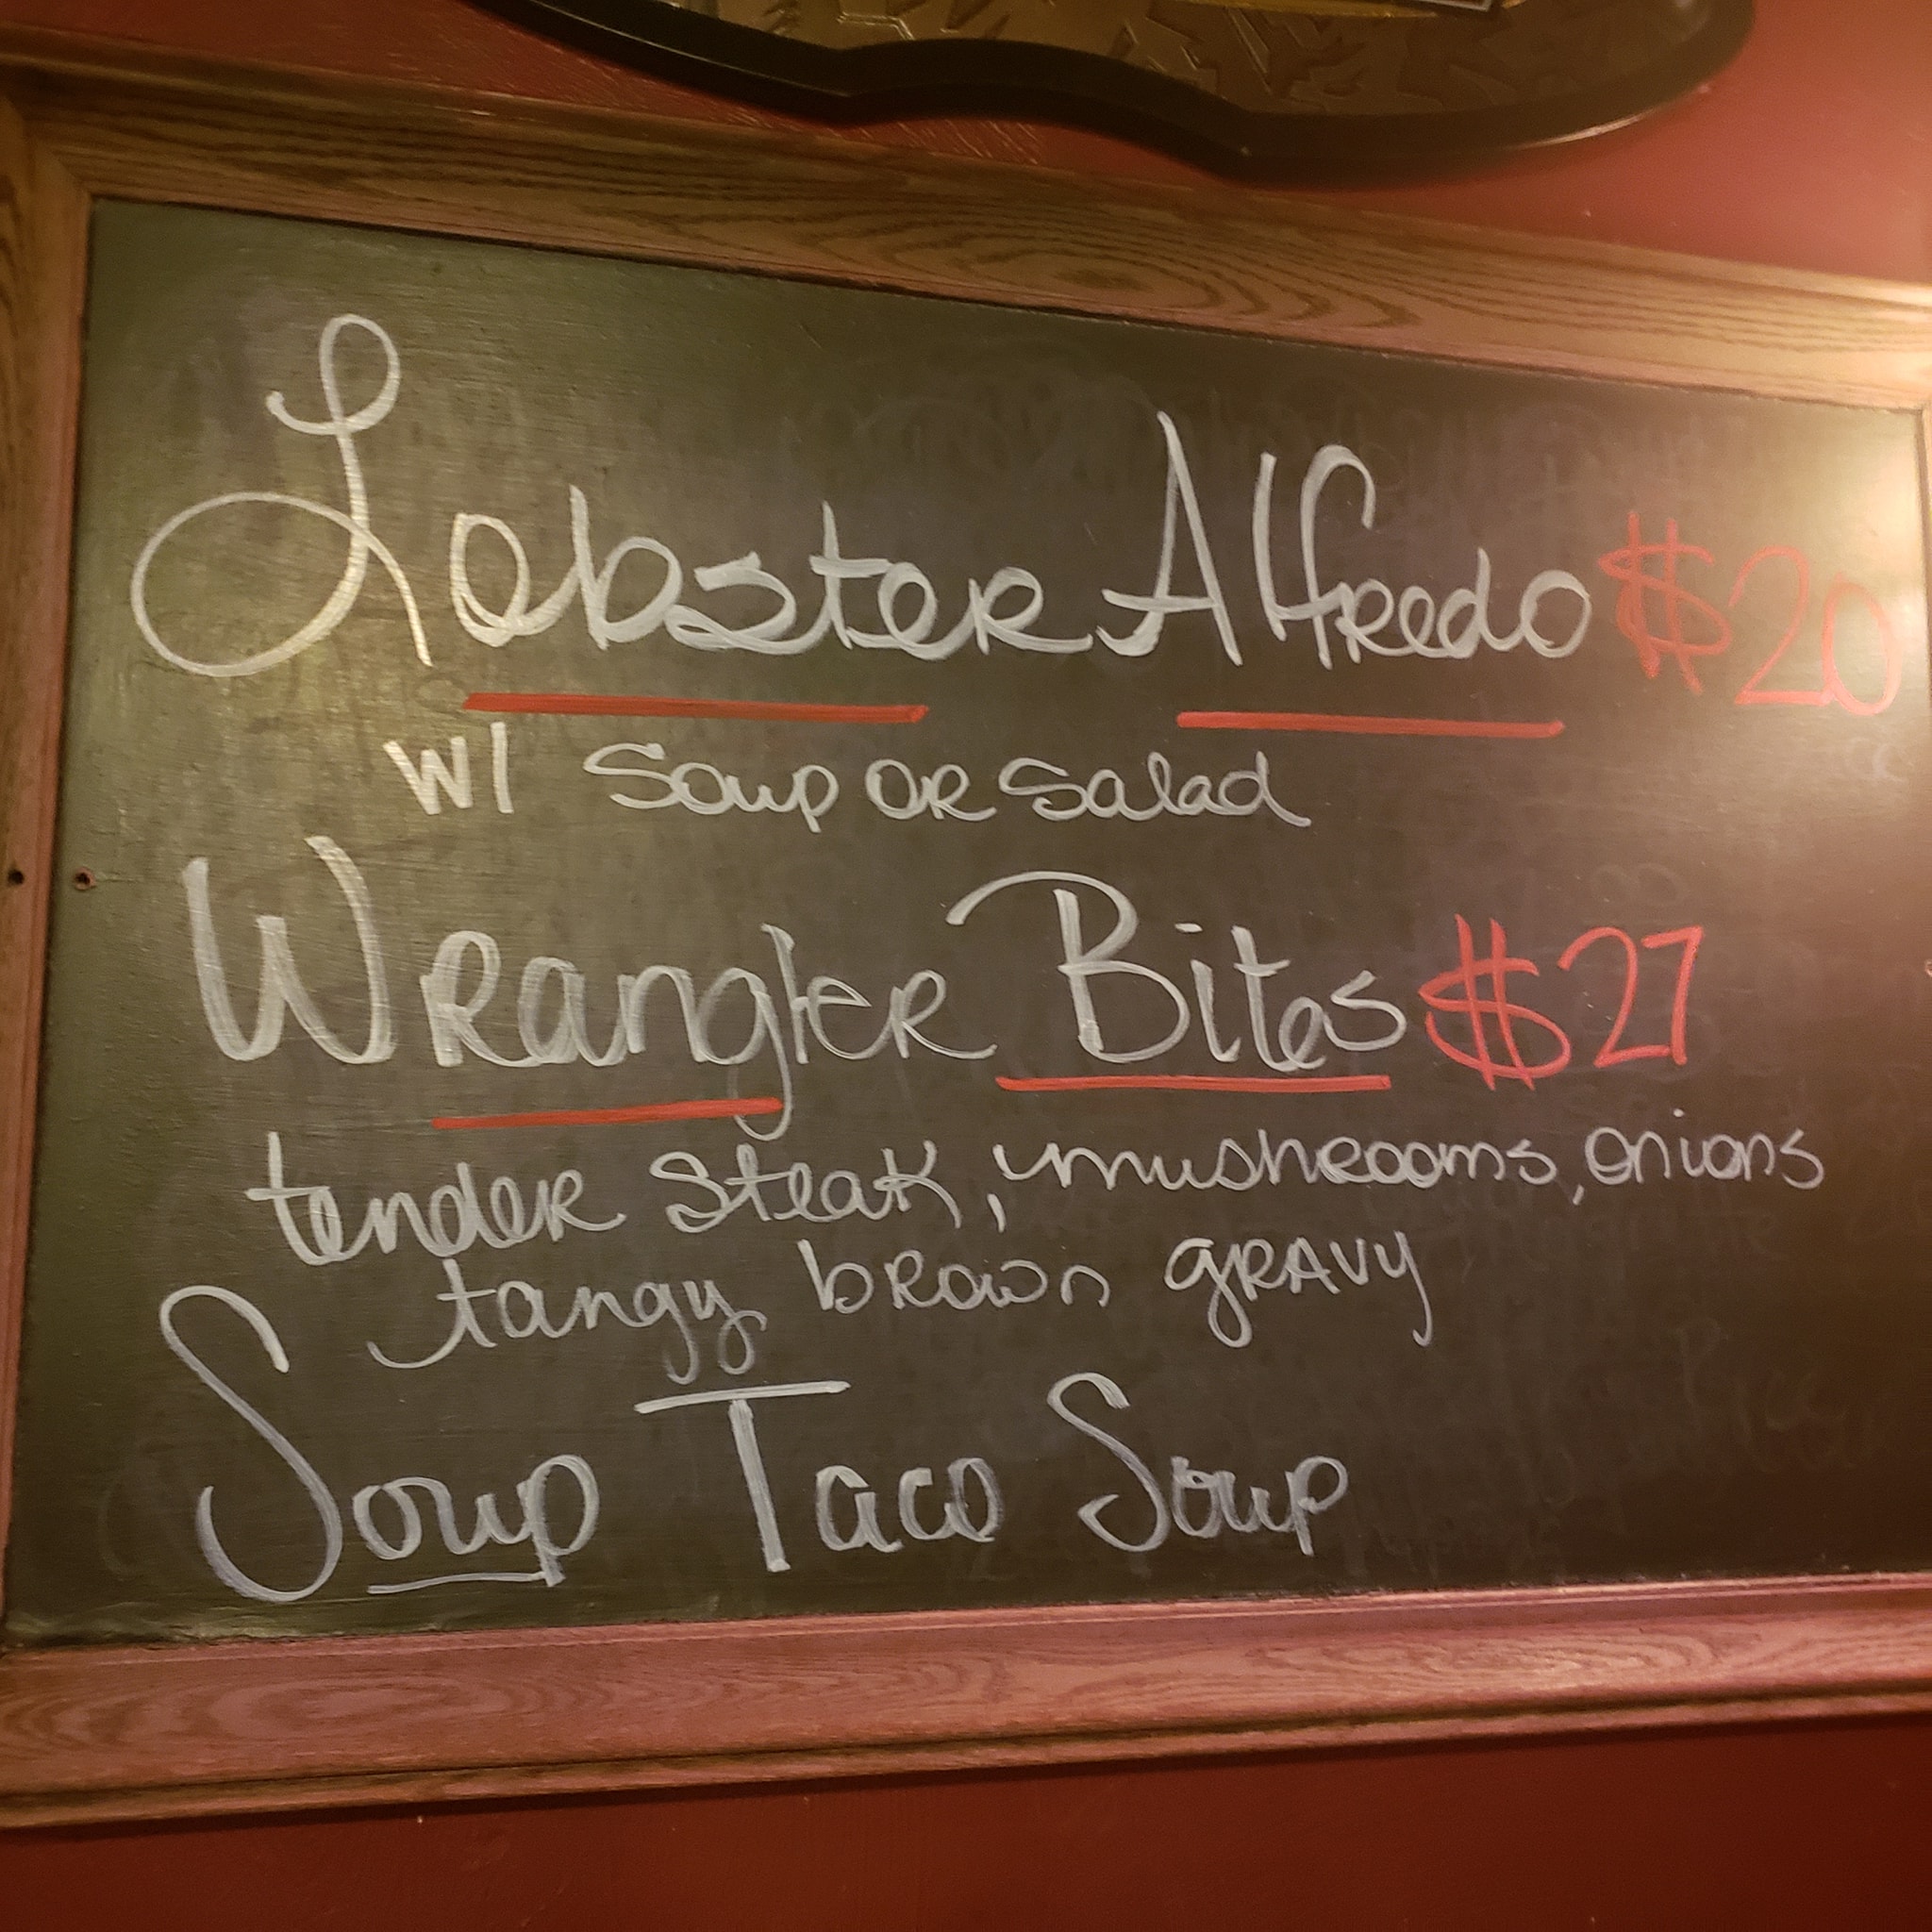 Lobster Alfredo $20
w/ Soup or Salad
Wrangler Bites $27
tender steak, mushrooms, onions
tangy brown gravy
Soup Taco Soup